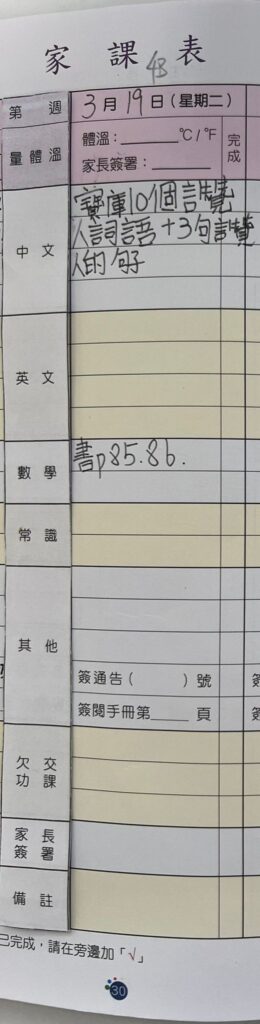 家課表
4B
第 週 3月19日(星期二)
量體溫 體溫:______°C/°F 完成
家長簽署:______
中文 寶庫10個詩覽
人詞語+3句詩覽
人的句子
英文
數學 書p85.86.
常識
其他
簽通告( )號
簽閱手冊第______頁
欠交功課
家長簽署
備註
已完成,請在旁邊加「√」
30